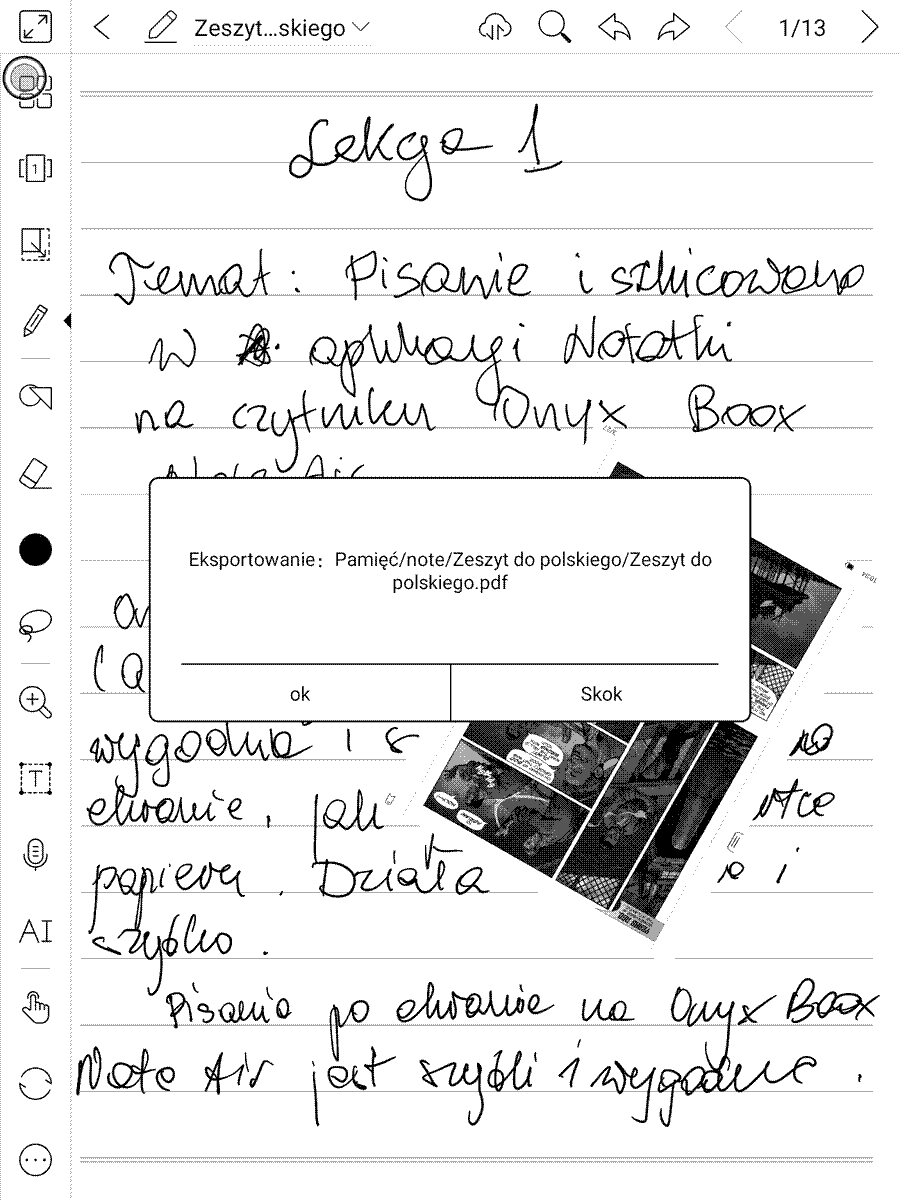 Zeszyt...skiego
1/13
Lekcja 1
Temat: Pisanie i szkicowanie
w aplikacji Notatki
na czytniku Onyx Boox
Note Air
Eksportowanie： Pamięć/note/Zeszyt do polskiego/Zeszyt do
polskiego.pdf
ok
Skok
wygodnie i s
na
ekranie, jak
papieru. Działa
i
szybko.
Pisanie po ekranie na Onyx Boox
Note Air jest szybki i wygodne.
1
T
AI